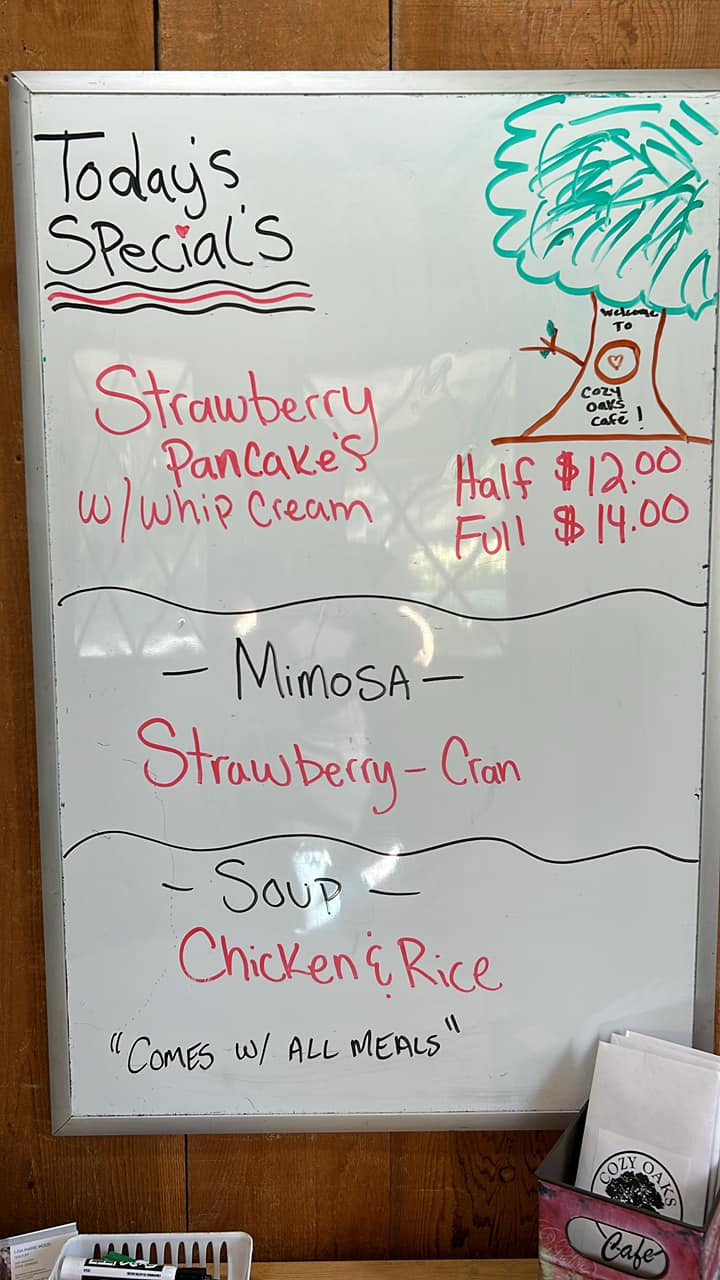 Today's
Special's
Welcome
To
Cozy
Oaks
Cafe!
Strawberry
Pancake's
w/whip Cream
Half $12.00
Full $14.00
- Mimosa -
Strawberry - Cran
- Soup -
Chicken & Rice
"Comes w/ ALL MEALS"
COZY OAKS
Cafe